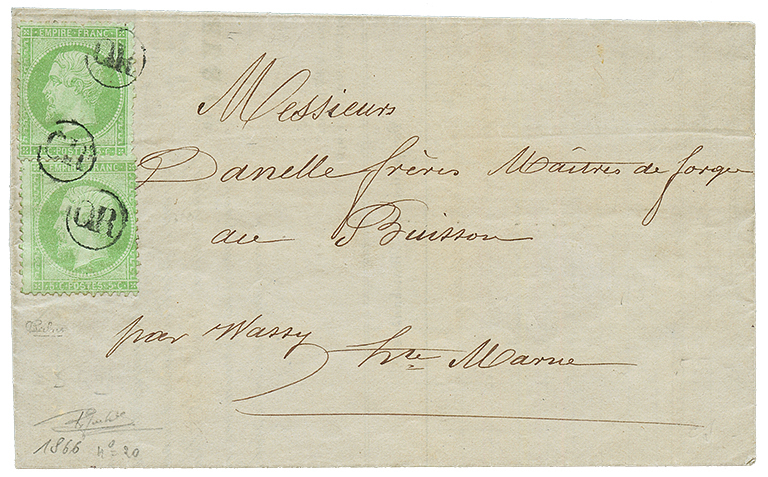 EMPIRE FRANC
OR
5 C POSTES 5 C
OR
EMPIRE FRANC
OR
5 C POSTES 5 C
Messieurs
Danelle frères Maîtres de forges
au Buisson
par Wassy
hte Marne
1866 no 20